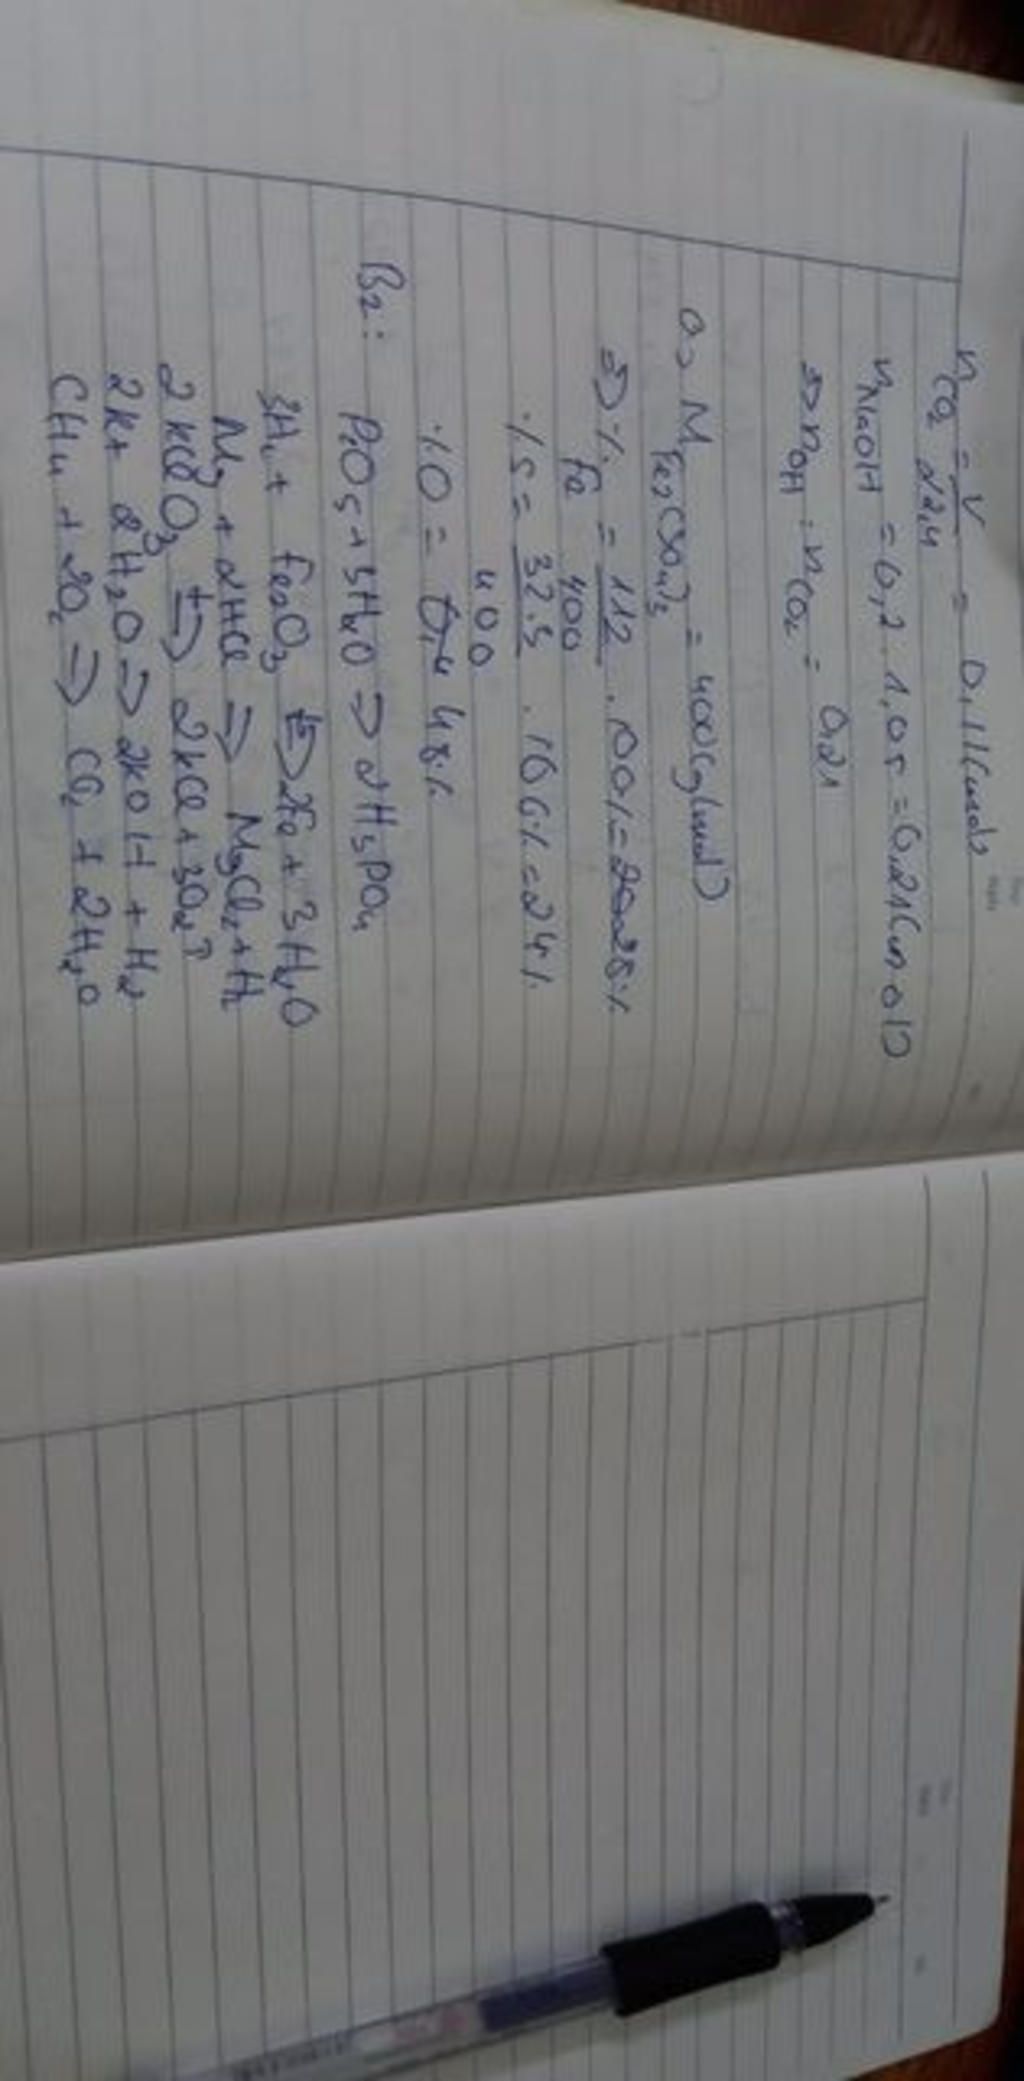 nCO2 = V/22,4 = 0,1(mol)
nNaOH = 0,2 . 1,05 = 0,21(mol)
=> nOH : nCO2 = 0,21
a, M Fe2(SO4)3 = 400(g/mol)
=> % Fe = 112/400 . 100% = 28%
%S = 32.3/400 . 100% = 24%
%O = 48%
B2: P2O5 + 3H2O => 2H3PO4
3H2 + Fe2O3 t=> 2Fe + 3H2O
Mg + 2HCl => MgCl2 + H2
2KClO3 t=> 2KCl + 3O2↑
2K + 2H2O => 2KOH + H2
CH4 + 2O2 => CO2 + 2H2O